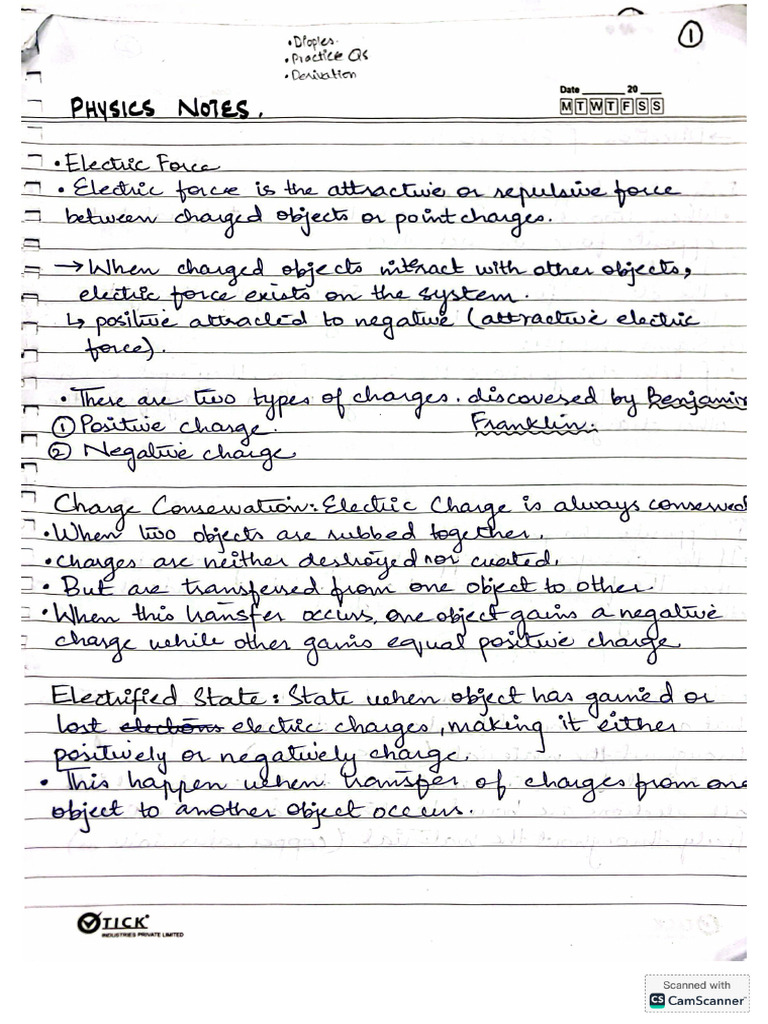 • Dioples.
• Practice Qs
• Derivation
①
Date ________ 20 ___
M T W T F S S
PHYSICS NOTES.
• Electric Force
• Electric force is the attractive or repulsive force
between charged objects or point charges.
→ When charged objects interact with other objects,
electric force exists on the system.
↳ positive attracted to negative (attractive electric
force).
• There are two types of charges. discovered by Benjamin
① Positive charge. Franklin.
② Negative charge
Charge Conservation: Electric Charge is always conserved
• When two objects are rubbed together.
• charges are neither destroyed nor created.
• But are transferred from one object to other.
• When this transfer occurs, one object gains a negative
charge while other gains equal positive charge
Electrified State: State when object has gained or
lost elections electric charges, making it either
positively or negatively charge.
• This happen when transfer of charges from one
object to another object occurs.
TICK
INDUSTRIES PRIVATE LIMITED
Scanned with
CS CamScanner